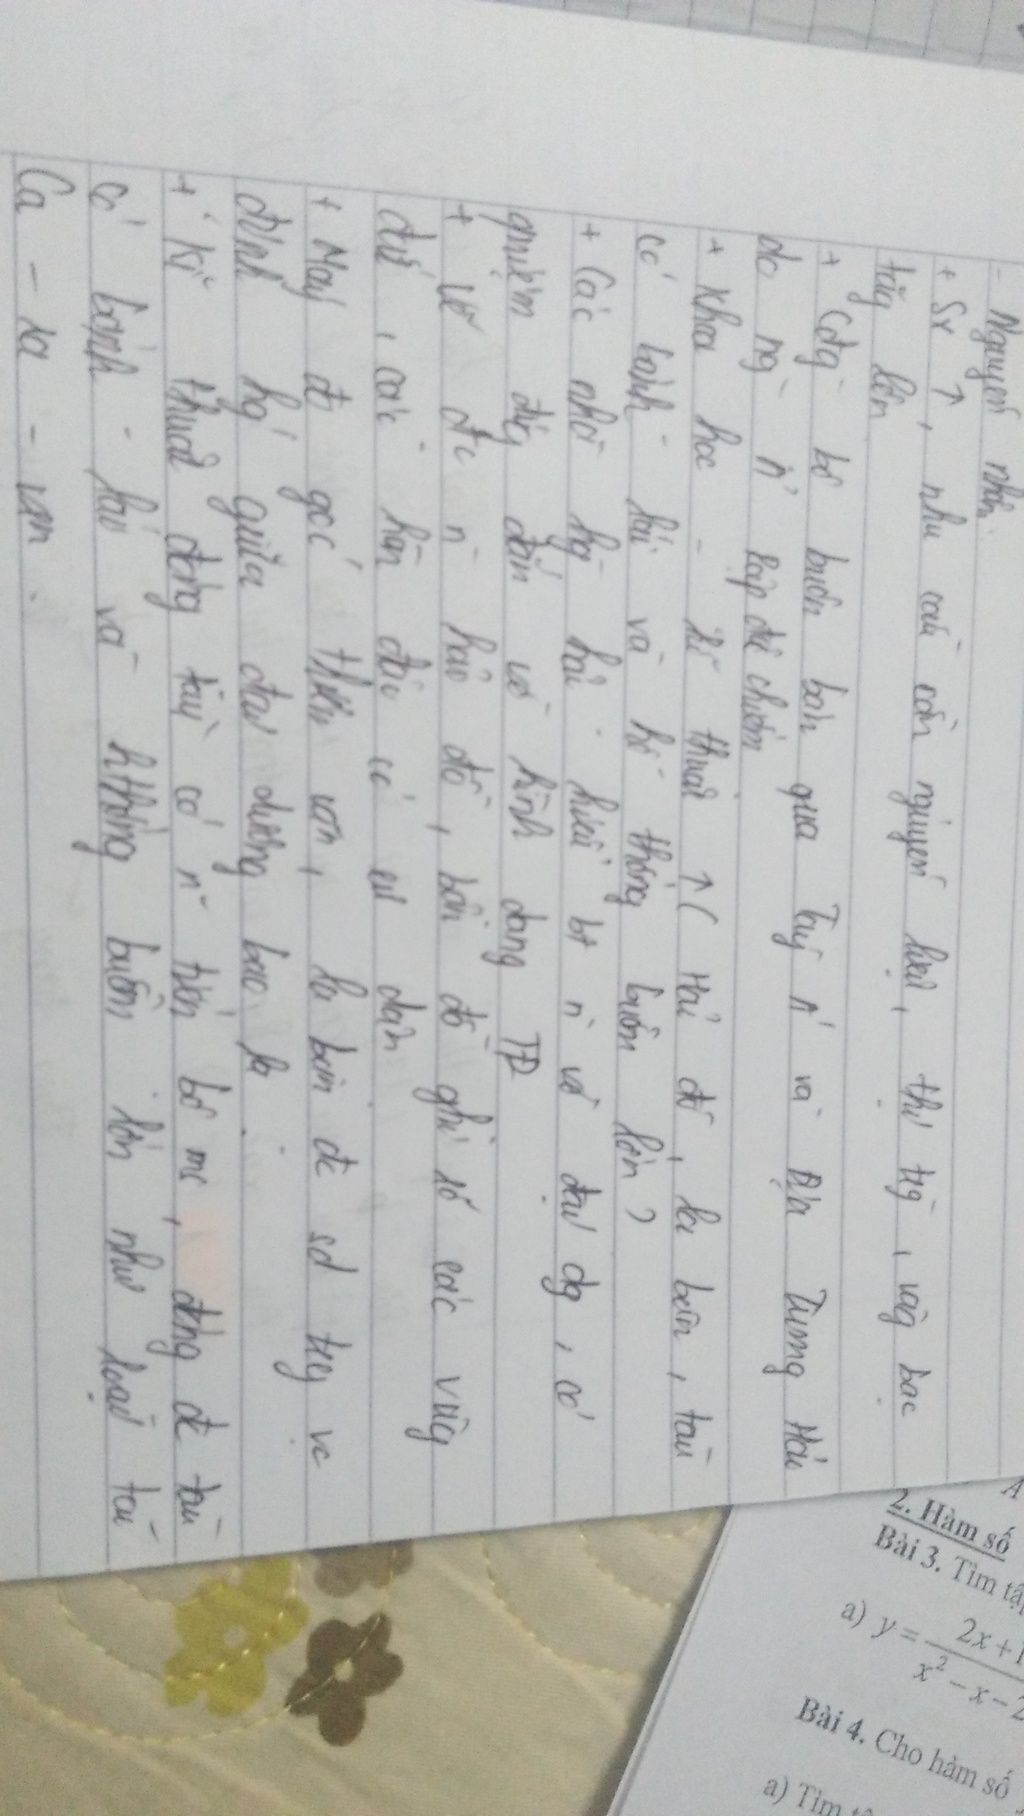 - Nguyên nhân
+ Sx ↑, nhu cầu còn nguyên liệu, thị tr̀g, vàg bạc
tăg lên
+ Cđg bộ buôn bán qua Tây Á và Địa Trung Hải
do ng̀ Ả rập độc chiếm
+ Khoa học - kĩ thuật ↑ ( Hải đồ, la bàn, tàu
có bánh lái và hệ thống buồm lớn )
+ Các nhà hg̀ hải hiểu bt n̉ về đại dg, có
quan niệm đúg đắn về hình dạng TĐ
+ Vẽ đc n̉ hải đồ, bản đồ ghi rõ các vùg
đất, các hòn đảo có cư dân
+ Máy đo góc thiên văn, la bàn đc sd trog vc
định hg' giữa đại dương bao la.
+ Kĩ thuật đóng tàu có n̉ tiến bộ ms, đóng đc tàu
có bánh lái và hthống buồm lớn như loại tàu
Ca - ra - ven.
2. Hàm số
Bài 3. Tìm tậ
a) y = 2x+1 / x² - x - 2
Bài 4. Cho hàm số
a) Tìm